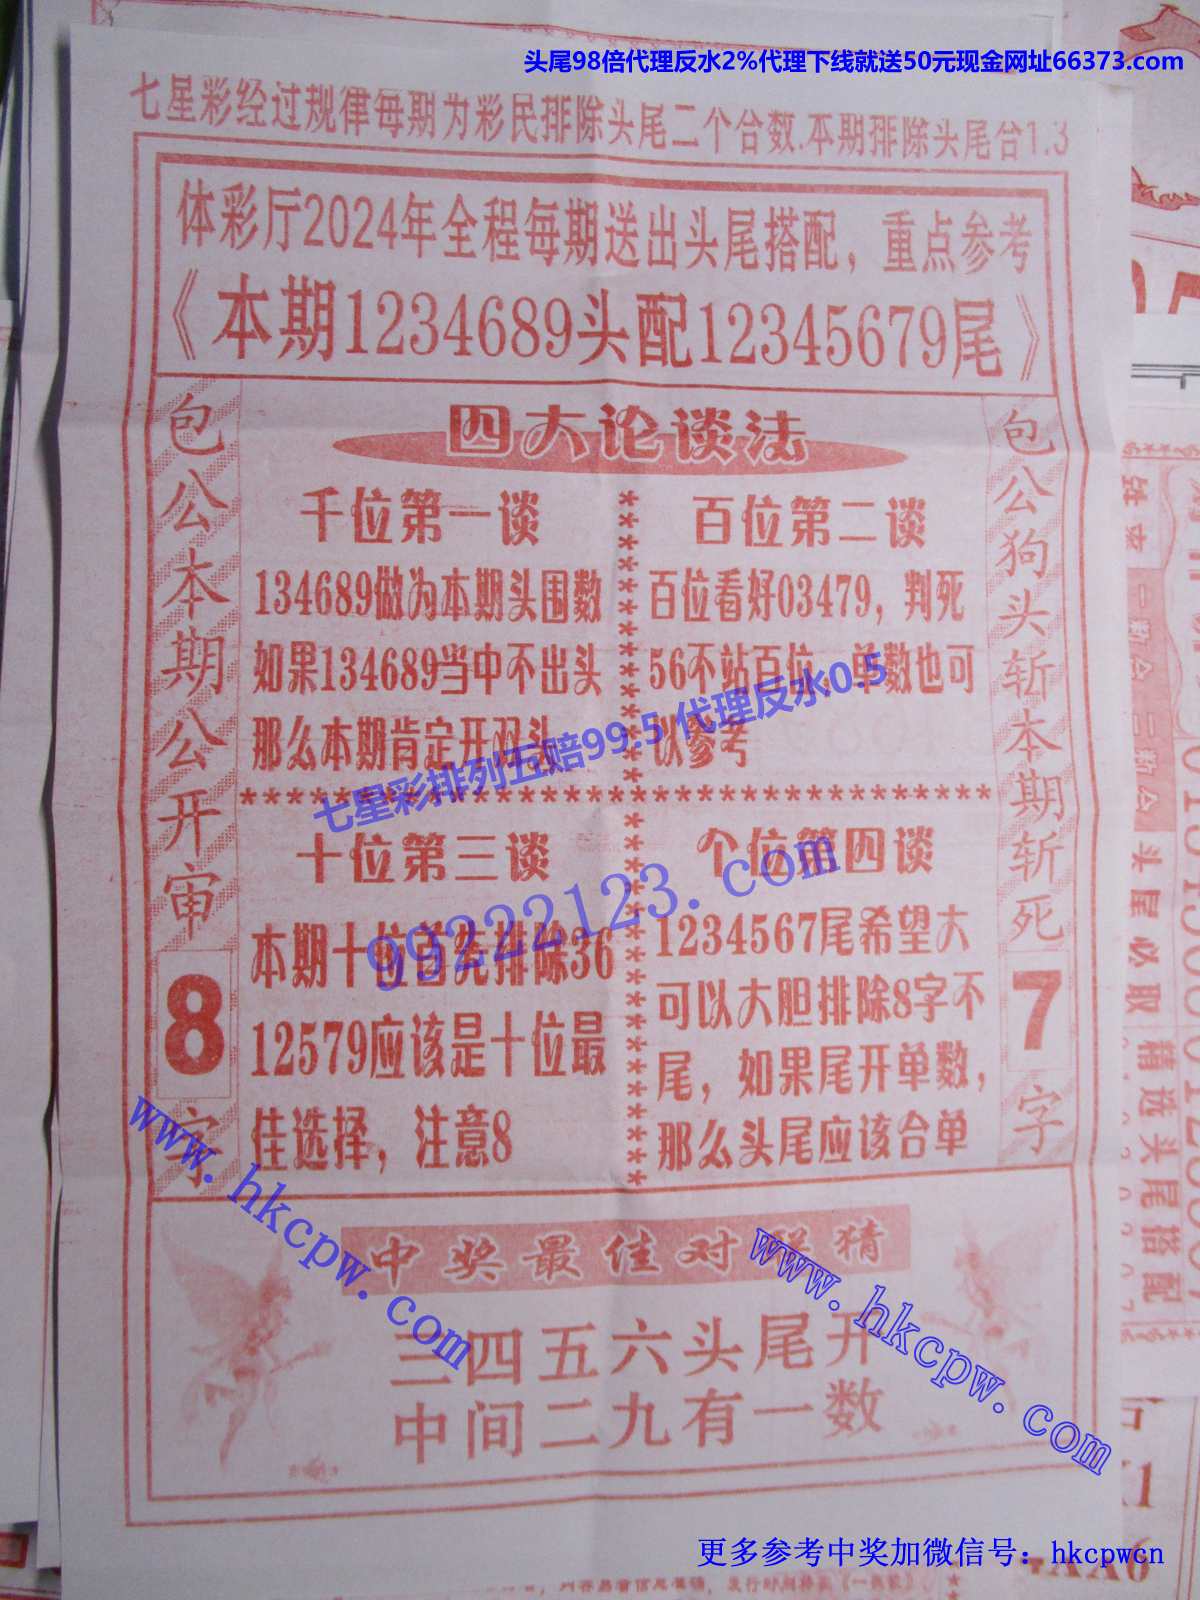 头尾98倍代理反水2%代理下线就送50元现金网址66373.com
七星彩经过规律每期为彩民排除头尾二个合数.本期排除头尾合1.3
体彩厅2024年全程每期送出头尾搭配，重点参考
《本期1234689头配12345679尾》
四大论谈法
包公本期公开审8字
千位第一谈
134689做为本期头围数
如果134689当中不出头
那么本期肯定开双头
百位第二谈
百位看好03479，判死
56不站百位，单数也可
以参考
十位第三谈
本期十位首先排除36
12579应该是十位最
佳选择，注意8
个位第四谈
1234567尾希望大
可以大胆排除8字不
尾，如果尾开单数，
那么头尾应该合单
包公狗头斩本期斩死7字
七星彩排列五赔99.5 代理反水0.5
99222123.com
www.hkcpw.com
www.hkcpw.com
中奖最佳对联猜
三四五六头尾开
中间二九有一数
头尾必取
精选头尾搭配
更多参考中奖加微信号：hkcpwcn